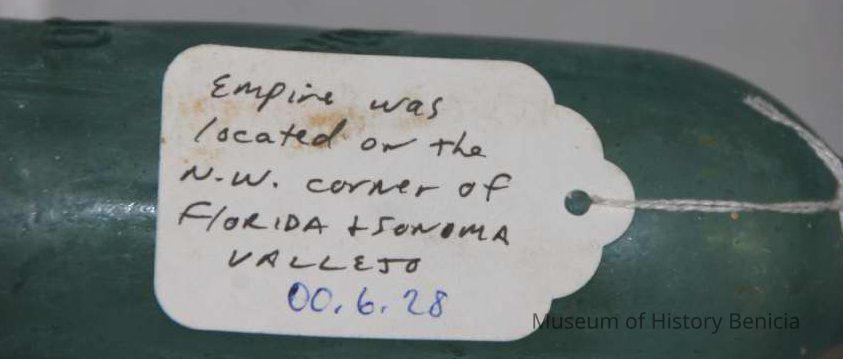 Empire was
located on the
N.W. corner of
FLORIDA + SONOMA
VALLEJO
00.6.28
Museum of History Benicia